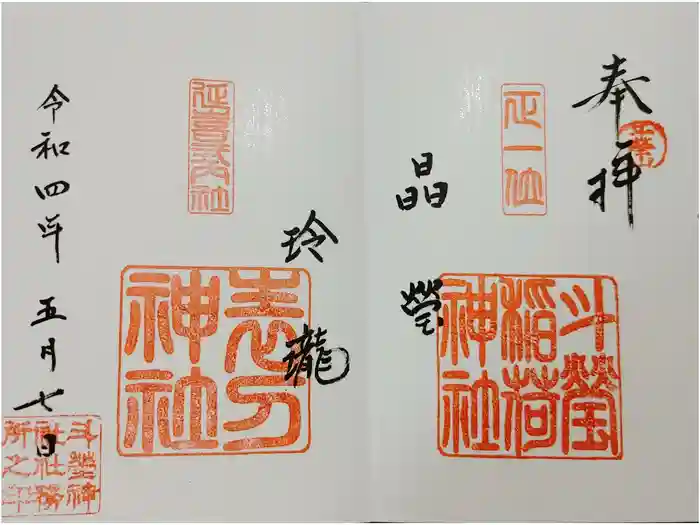 奉拝
正一位
晶瑩
斗瑩
稲荷
神社
玲瓏
延喜式内社
志力
神社
令和四年 五月七日
斗瑩神
社社務
所之印